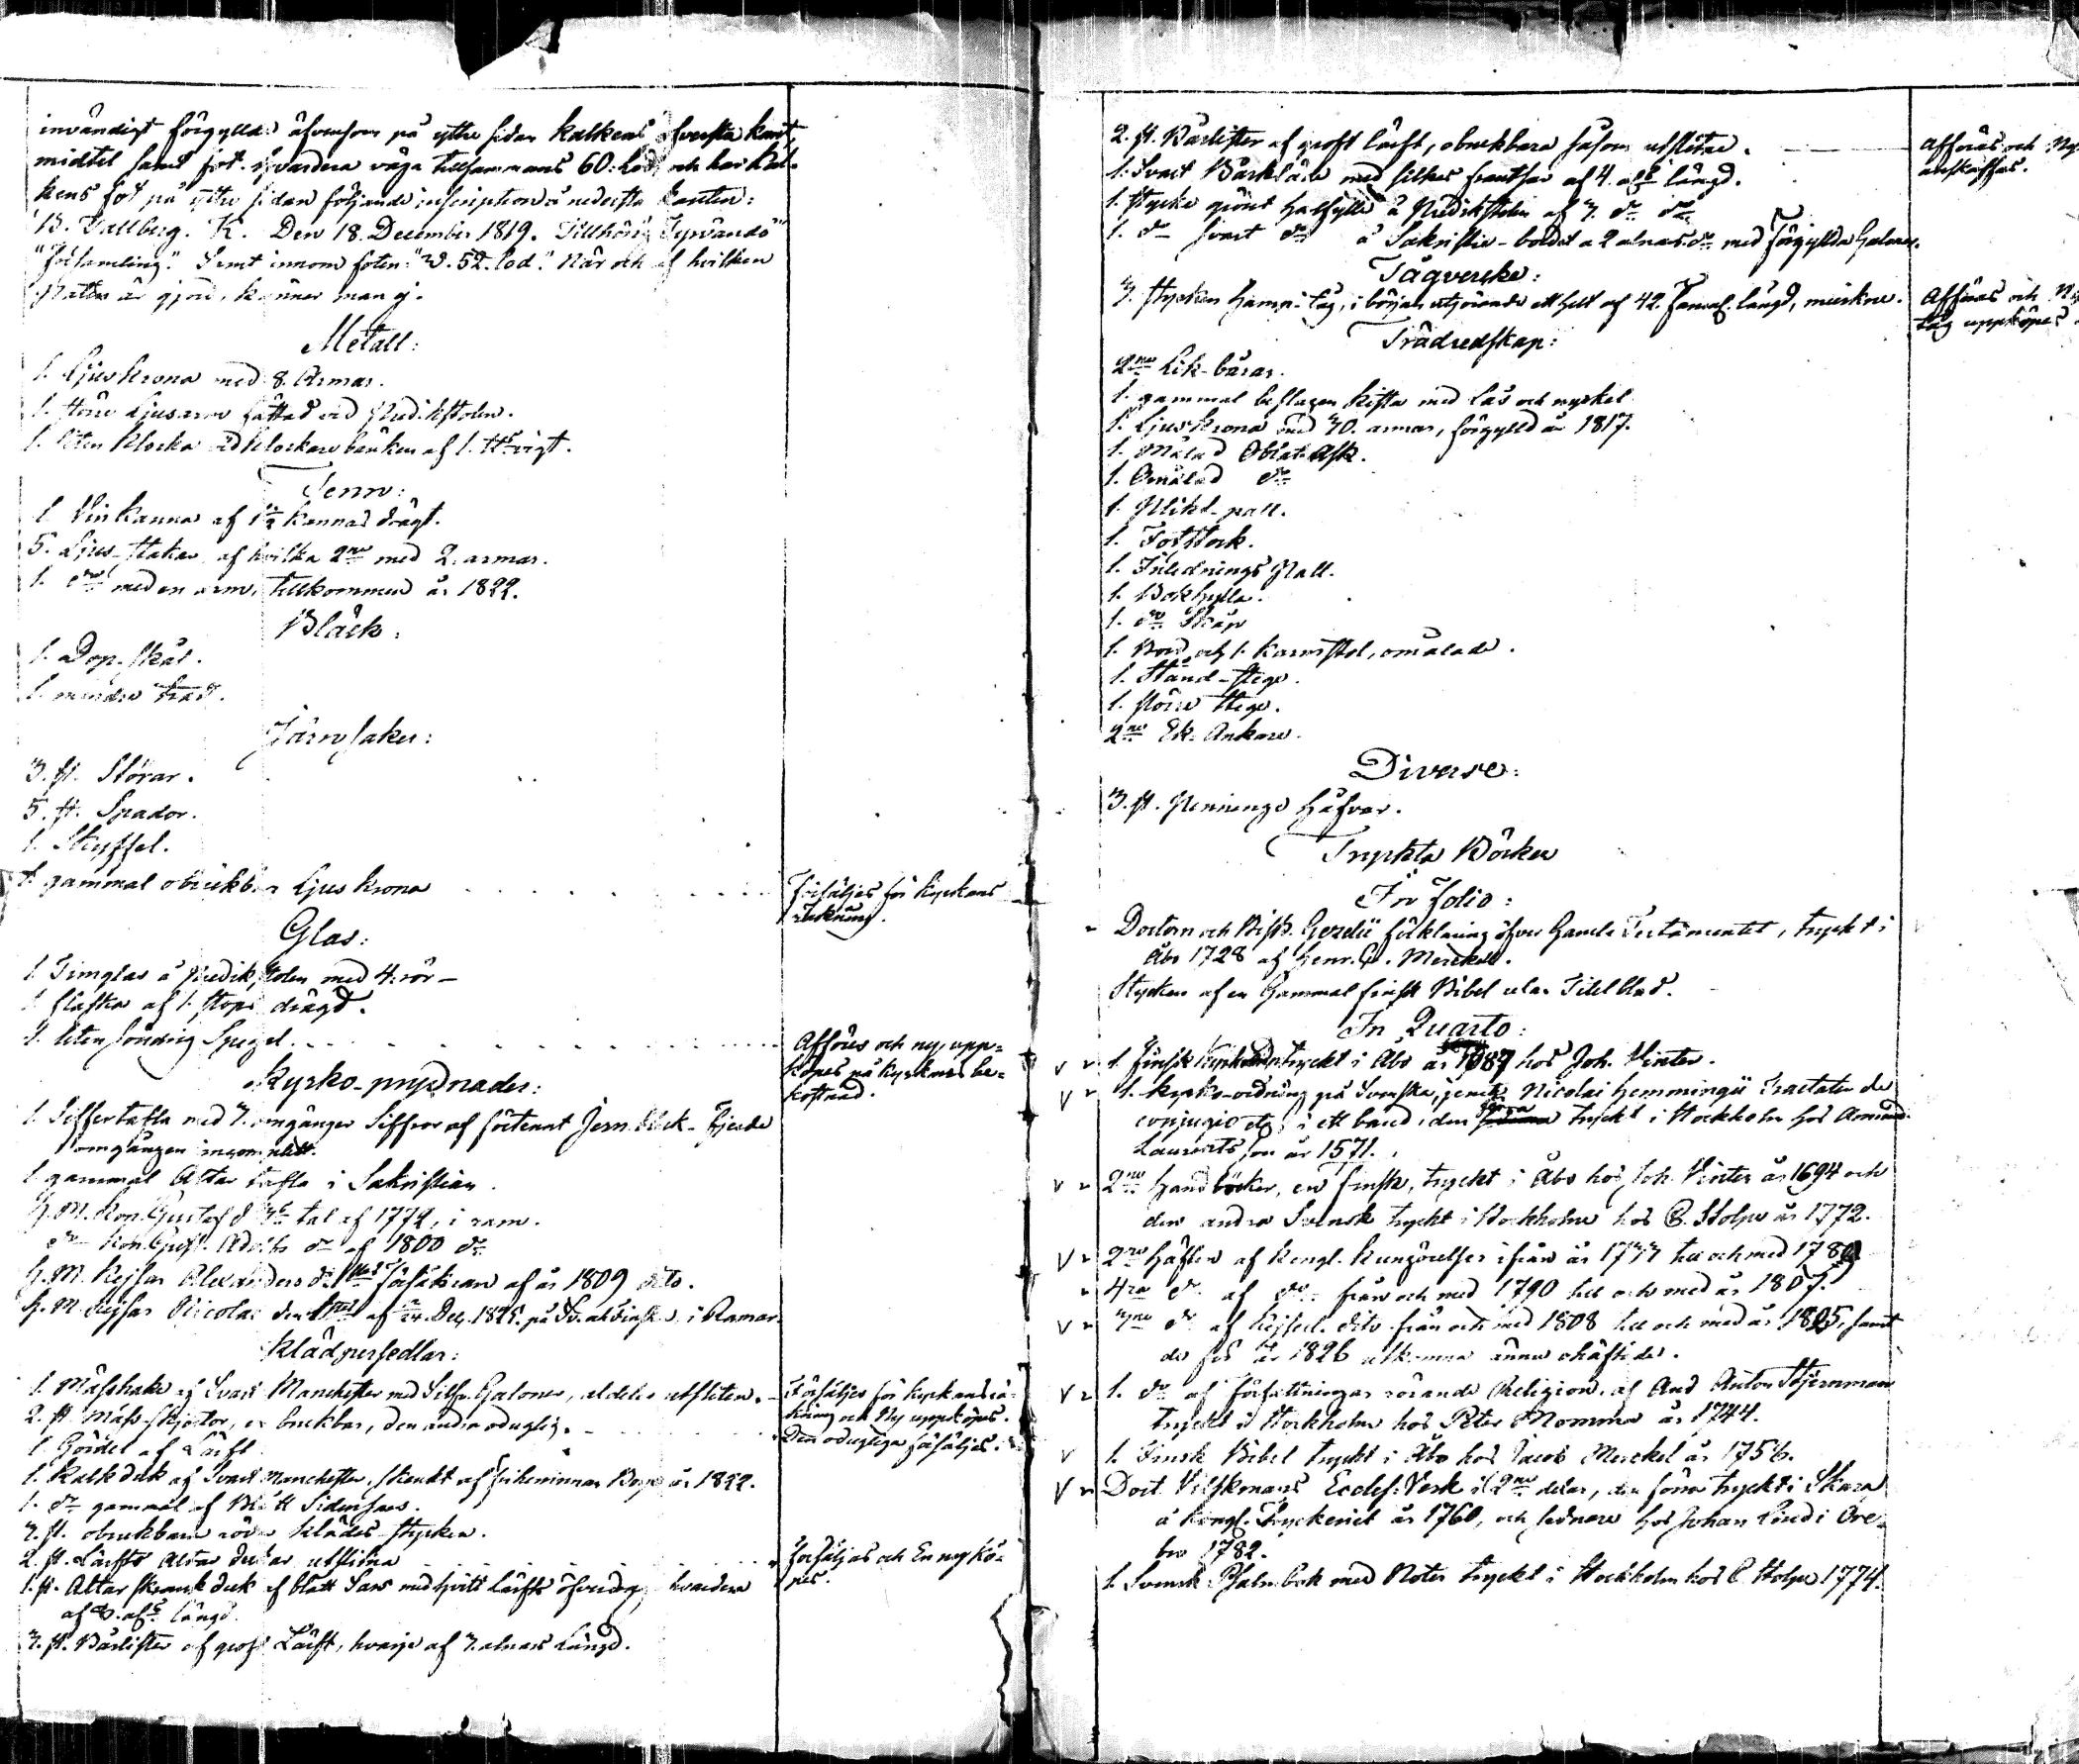 invändigt förgylld äfvensom på yttre sidan kalkens öfversta kant,
midtel samt fot. väga tillsammans 60. Lod, och har kal-
kens fot på yttre sidan följande inscription å nedersta kanten:
Den 18. December 1819. Tillhörig Tyrvändö
"Församling." Samt innom foten: "W. 52. lod." När och af hvilken
är gjord, känner man ej.
Metall:
1. Ljus Krona med 8. Armar.
1. större Ljusarm fättad vid Predikstolen.
1. liten Klocka vid klockare bänken af 1. vigt.
Tenn:
1 Vin Kanna af 1½ Kannas drägt.
5. Ljus-stakar af hvilka 2ne med 2. armar.
1. do med en arm, tillkommen år 1822.
Bläck:
1. Dop-skål.
1. mindre
Järnsaker:
3. st. Störar.
5. st. Spador.
1. Skyffel.
1. gammal obrukbar Ljus krona
Försäljes för Kyrkans
räkning.
Glas:
1 Timglas å Predikstolen med 4. rör
1 flaska af 1. stops drägd.
1. liten söndrig Spegel
Afföres och ny upp-
köpes på Kyrkans be-
kostnad.
Kyrko-prydnader:
1. Siffertafla med 3. omgånger Siffror af förtent Jern bleck - fjerde
omgången incomplett.
1 gammal Altar tafla i Sakristian.
H. M. Kon. Gustaf d 3e tal af 1772, i ram.
do Kon. Gust. Adolfs do af 1800 do
H. M. Kejsar Alexanders d. 1sta försäkran af år 1809 dito.
H. M. Kejsar Nicolai den 1sta af Dec. 1825. på Sv. och finska i Ramar.
Klädpersedlar:
1. Mässhake af Svart Manchester med Silfv. Galoner, aldeles utsliten.
Försäljes för Kyrkans rä-
kning och Ny uppköpes.
2. st. Mäss-skjortor, en brukbar, den andra oduglig.
Den odugliga försäljes.
1 Gördel af Lärft
1. Kalkduk af Svart Manchester, skänkt af friherinnan Boye år 1822.
1. do gammal af Blått Sidensars.
3. st. obrukbara röda klädes-stycken.
2. st. Lärfts Altar dukar utslitna
Försäljas och En ny kö-
pes.
1. st. Altar skrank duk af blått Sars med hvitt lärfts öfverdrag, hvardera
af 8. al:s längd.
3. st. Bärlister af groft Lärft, hvarje af 3. alnars Längd.
2. st. Bärlister af groft lärft, obrukbara såsom utslitne.
afföras och Ny
anskaffas.
1. Svart Bårkläde med silkes frantsar af 4. al:s längd.
1. stycke grönt halfylle å Predikstolen af 3. do do
1. do svart do å Sakristie-bordet a 2 alnar do med förgyllda Galoner.
Tågvercke:
3. stycken hamp-tåg, i början utgörande ett helt af 42. famnars längd, murkne.
Afföras och Ny
tåg uppköpes.
Trädredskap:
2ne Lik-bårar.
1. gammal beslagen Kista med Lås och nyckel
1. Ljus Krona med 30. armar, förgylld år 1817.
1. Målad Oblat Ask.
1. Omålad do
1. Plikt-pall.
1. Fotstock.
1. Inlednings Pall.
1. Bokhylla.
1. do Skåp
1. Bord och 1. Karmstol, omålade.
1. Stånd-stege.
1. större stege.
2ne Ek Ankare.
Diverse:
3. st. Pennings håfvar.
Tryckta Böcker
In folio:
Doctorn och Bisk. Gezelii förklaring öfver Gamla Testamentet, tryckt i
Åbo 1728 af Henr. C. Merckell.
Stycken af en Gammal finsk Bibel utan Titelblad.
In Quarto:
v 1. finsk tryckt i Åbo år 1687 hos Joh. Vinter.
v 1. Kyrko-ordning på Svenska, jemte Nicolai Hemmingii Tractater de
conjugio etc. i ett band, den förra tryckt i Stockholm hos Amund
Laurentsson år 1571.
v 2ne Handböcker, en Finsk, tryckt i Åbo hos Joh. Vinter år 1694 och
den andra Svensk tryckt i Stockholm hos C. Stolpe år 1772.
v 2ne Häften af Kongl. Kungörelser ifrån år till och med
4ra do af do från och med 1790 till och med år 1807.
v do af Kejserl. dito från och med 1808 till och med år 1825, samt
de för år 1826 utkomna ännu ohäftade.
v 1. do af författningar rörande Religion. af And Anton Stjernman
tryckt i Stockholm hos Peter Momma år 1744.
v 1. Finsk Bibel tryckt i Åbo hos Jacob Merckel år 1758.
v Doct. Vilskmans Eccles: Verk i 2ne delar, den förra tryckt i Skara
å Kongl. Tryckeriet år 1760, och sednare hos Johan Lind i Öre-
bro 1782.
1. Svensk Psalmbok med Noter tryckt i Stockholm hos C Stolpe 1774.